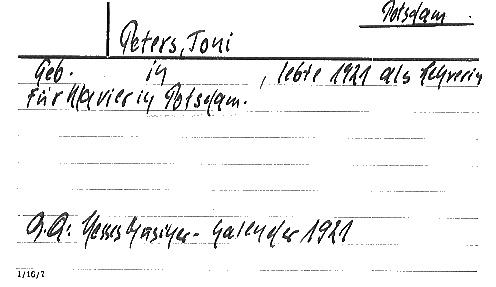 Potsdam.
Peters, Toni
Geb. in , lebte 1921 als Lehrerin
für Klavier in Potsdam.
Q.Q: Hesses Musiker-Kalender 1921
1/16/7